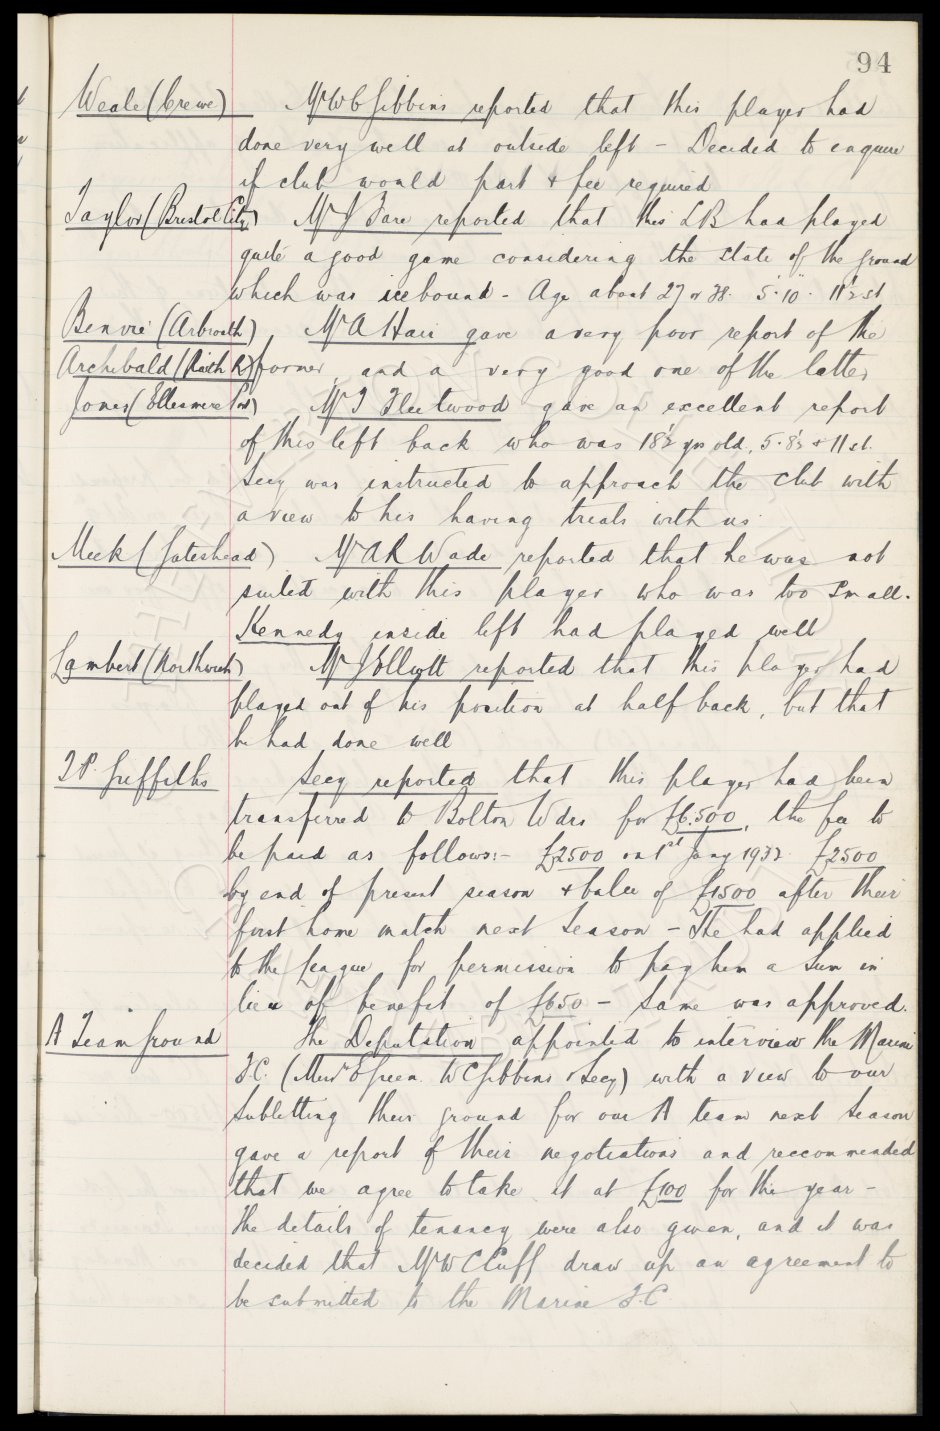 94
Weale (Crewe) Mr W C Gibbins reported that this player had
done very well at outside left - Decided to enquire
if club would part & fee required
Taylor (Bristol City) Mr J Fare reported that this LB had played
quite a good game considering the state of the ground
which was icebound - Age about 27 or 28. 5'.10". 11½ st
Benvie (Arbroath) Mr A Hair gave a very poor report of the
Archibald (Raith R) former, and a very good one of the latter
Jones (Ellesmere Port) Mr T Fleetwood gave an excellent report
of this left back who was 18½ yrs old, 5.8½ & 11 st.
Secy was instructed to approach the club with
a view to his having trials with us
Meek (Gateshead) Mr A R Wade reported that he was not
suited with this player who was too small.
Kennedy inside left had played well
Lambert (Northwich) Mr J Elliott reported that this player had
played out of his position at half back, but that
he had done well
T P. Griffiths Secy reported that this player had been
transferred to Bolton Wdrs for £6.500, the fee to
be paid as follows:- £2500 on 1st Jany 1932 £2500
by end of present season & balce of £1500 after their
first home match next season - He had applied
to the League for permission to pay him a sum in
lieu of benefit of £650 - same was approved.
A Team Ground The Deputation appointed to interview the Marine
F.C. (Messrs E Green. W C Gibbins & Secy) with a view to our
subletting their ground for our A team next season
gave a report of their negotiations and reccommended
that we agree to take it at £100 for the year -
The details of tenancy were also given, and it was
decided that Mr W C Cuff draw up an agreement to
be submitted to the Marine F.C.